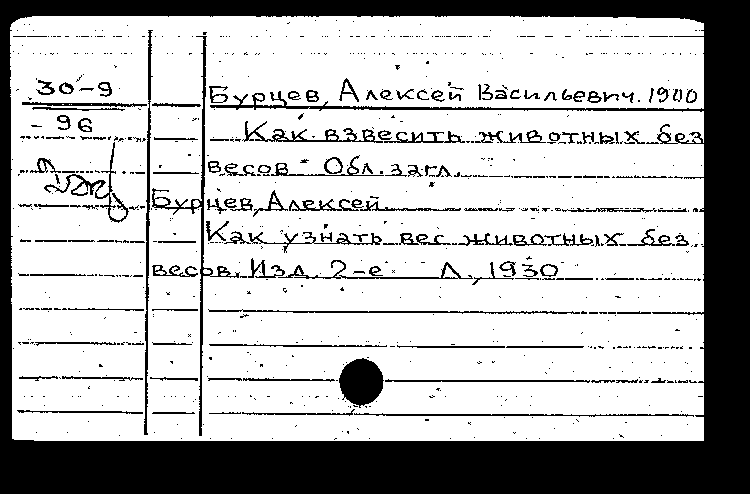 30-9
- 96
Бурцев, Алексей Васильевич. 1900
Как взвесить животных без
весов - Обл. загл.
Бурцев, Алексей.
Как узнать вес животных без
весов. Изд. 2-е Л., 1930